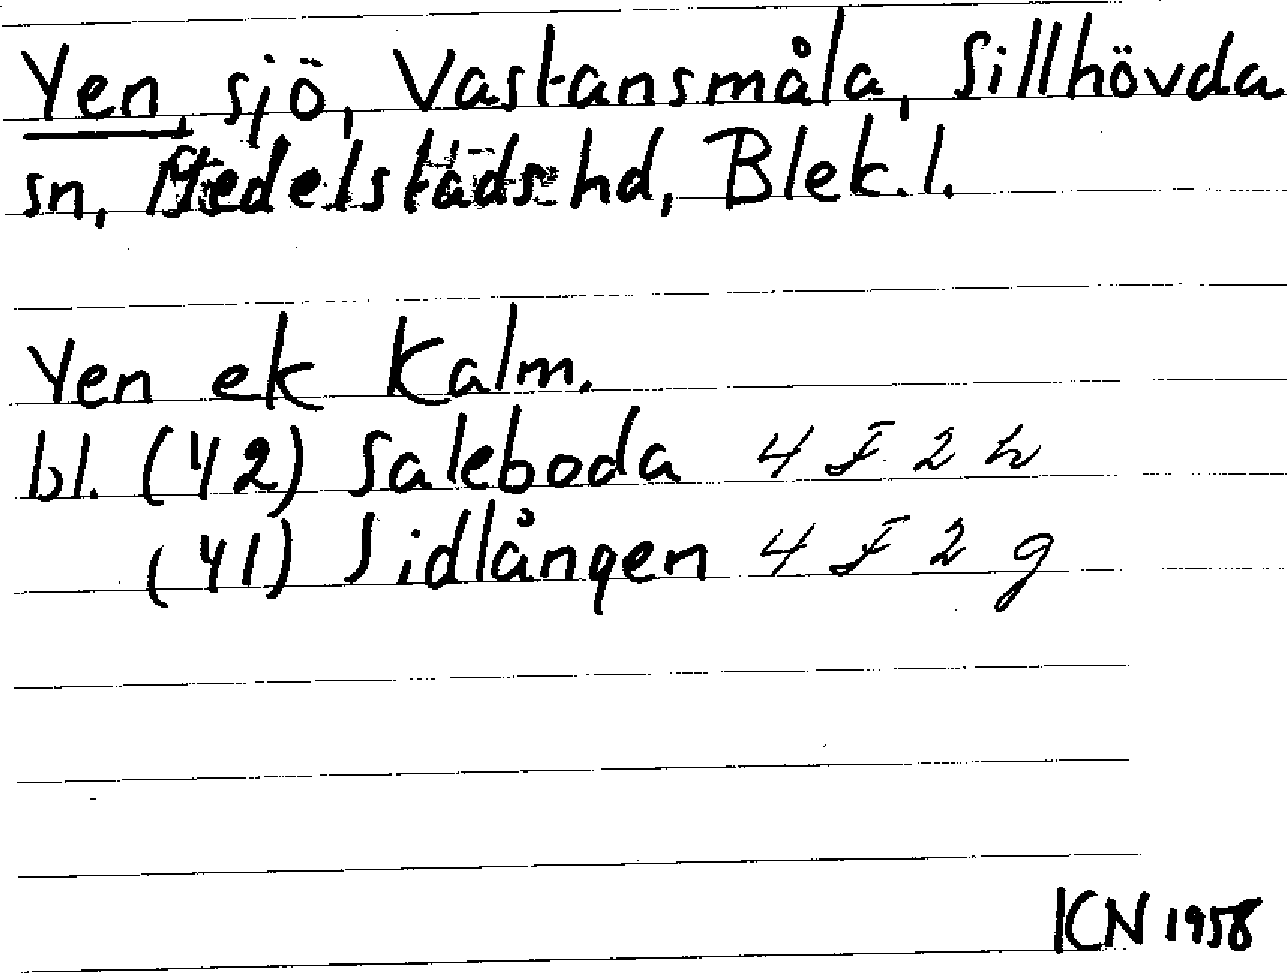 Yen, sjö, Vastansmåla, Sillhövda
sn, Medelstads hd, Blek.l.
Yen ek Kalm.
bl. (42) Saleboda 4 F 2 h
(41) Sidlången 4 F 2 g
ICN 1958